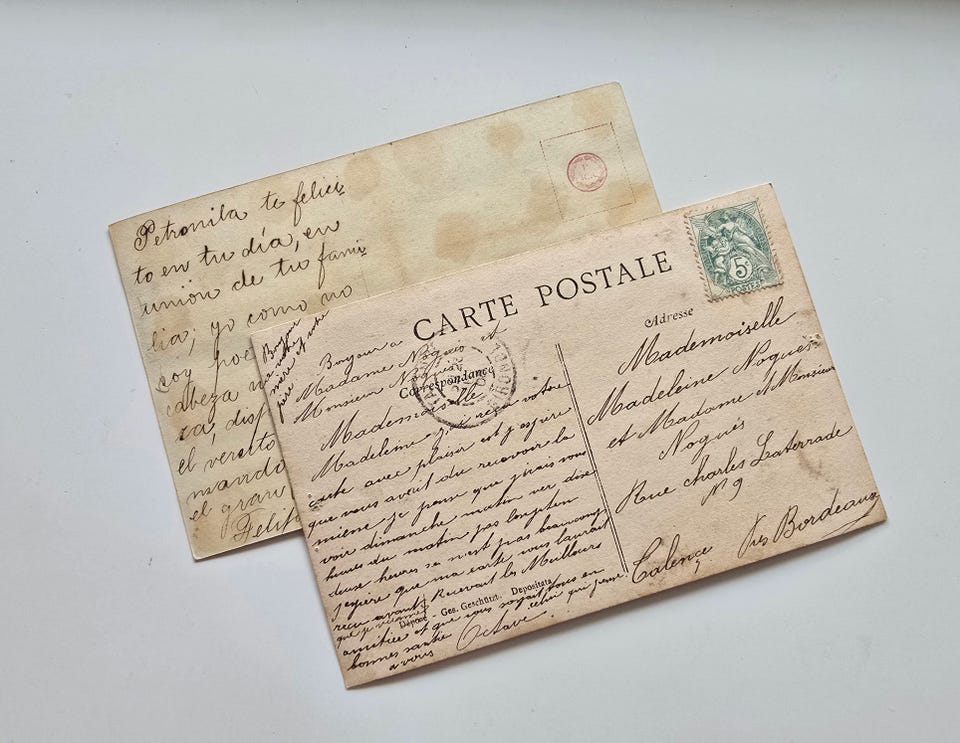 Petronila te felici
to en tu día, en
unión de tu fami
lia; yo como no
soy poe
cabeza
za, disp
el versito
mando
el gran
Felito
CARTE POSTALE
Correspondance
Bonjour
a votre
mère et votre
père
Bonjour a
Madame Noguès et
Monsieur Noguès
Mademoiselle
Madeleine j'ai reçu votre
carte avec plaisir et j'espère
que vous aveit du recevoir la
mienne je pense que j'irais vous
voir dimanche matin ver dixe
heures du matin pas longtemp
deux heures se n'est pas beaucoup
j'espère que ma carte vous laurait
reçu avant Recevait les Meilleurs
amitiee et que vous soyait tous en
bonnes santée Octave celui qui pense
a vous
Déposé - Ges. Geschützt. Depositata
5c
POSTES
Adresse
Mademoiselle
Madeleine Noguès
et Madame et Monsieur
Noguès
Rue charles Laterrade
N 9
Talence près Bordeaux